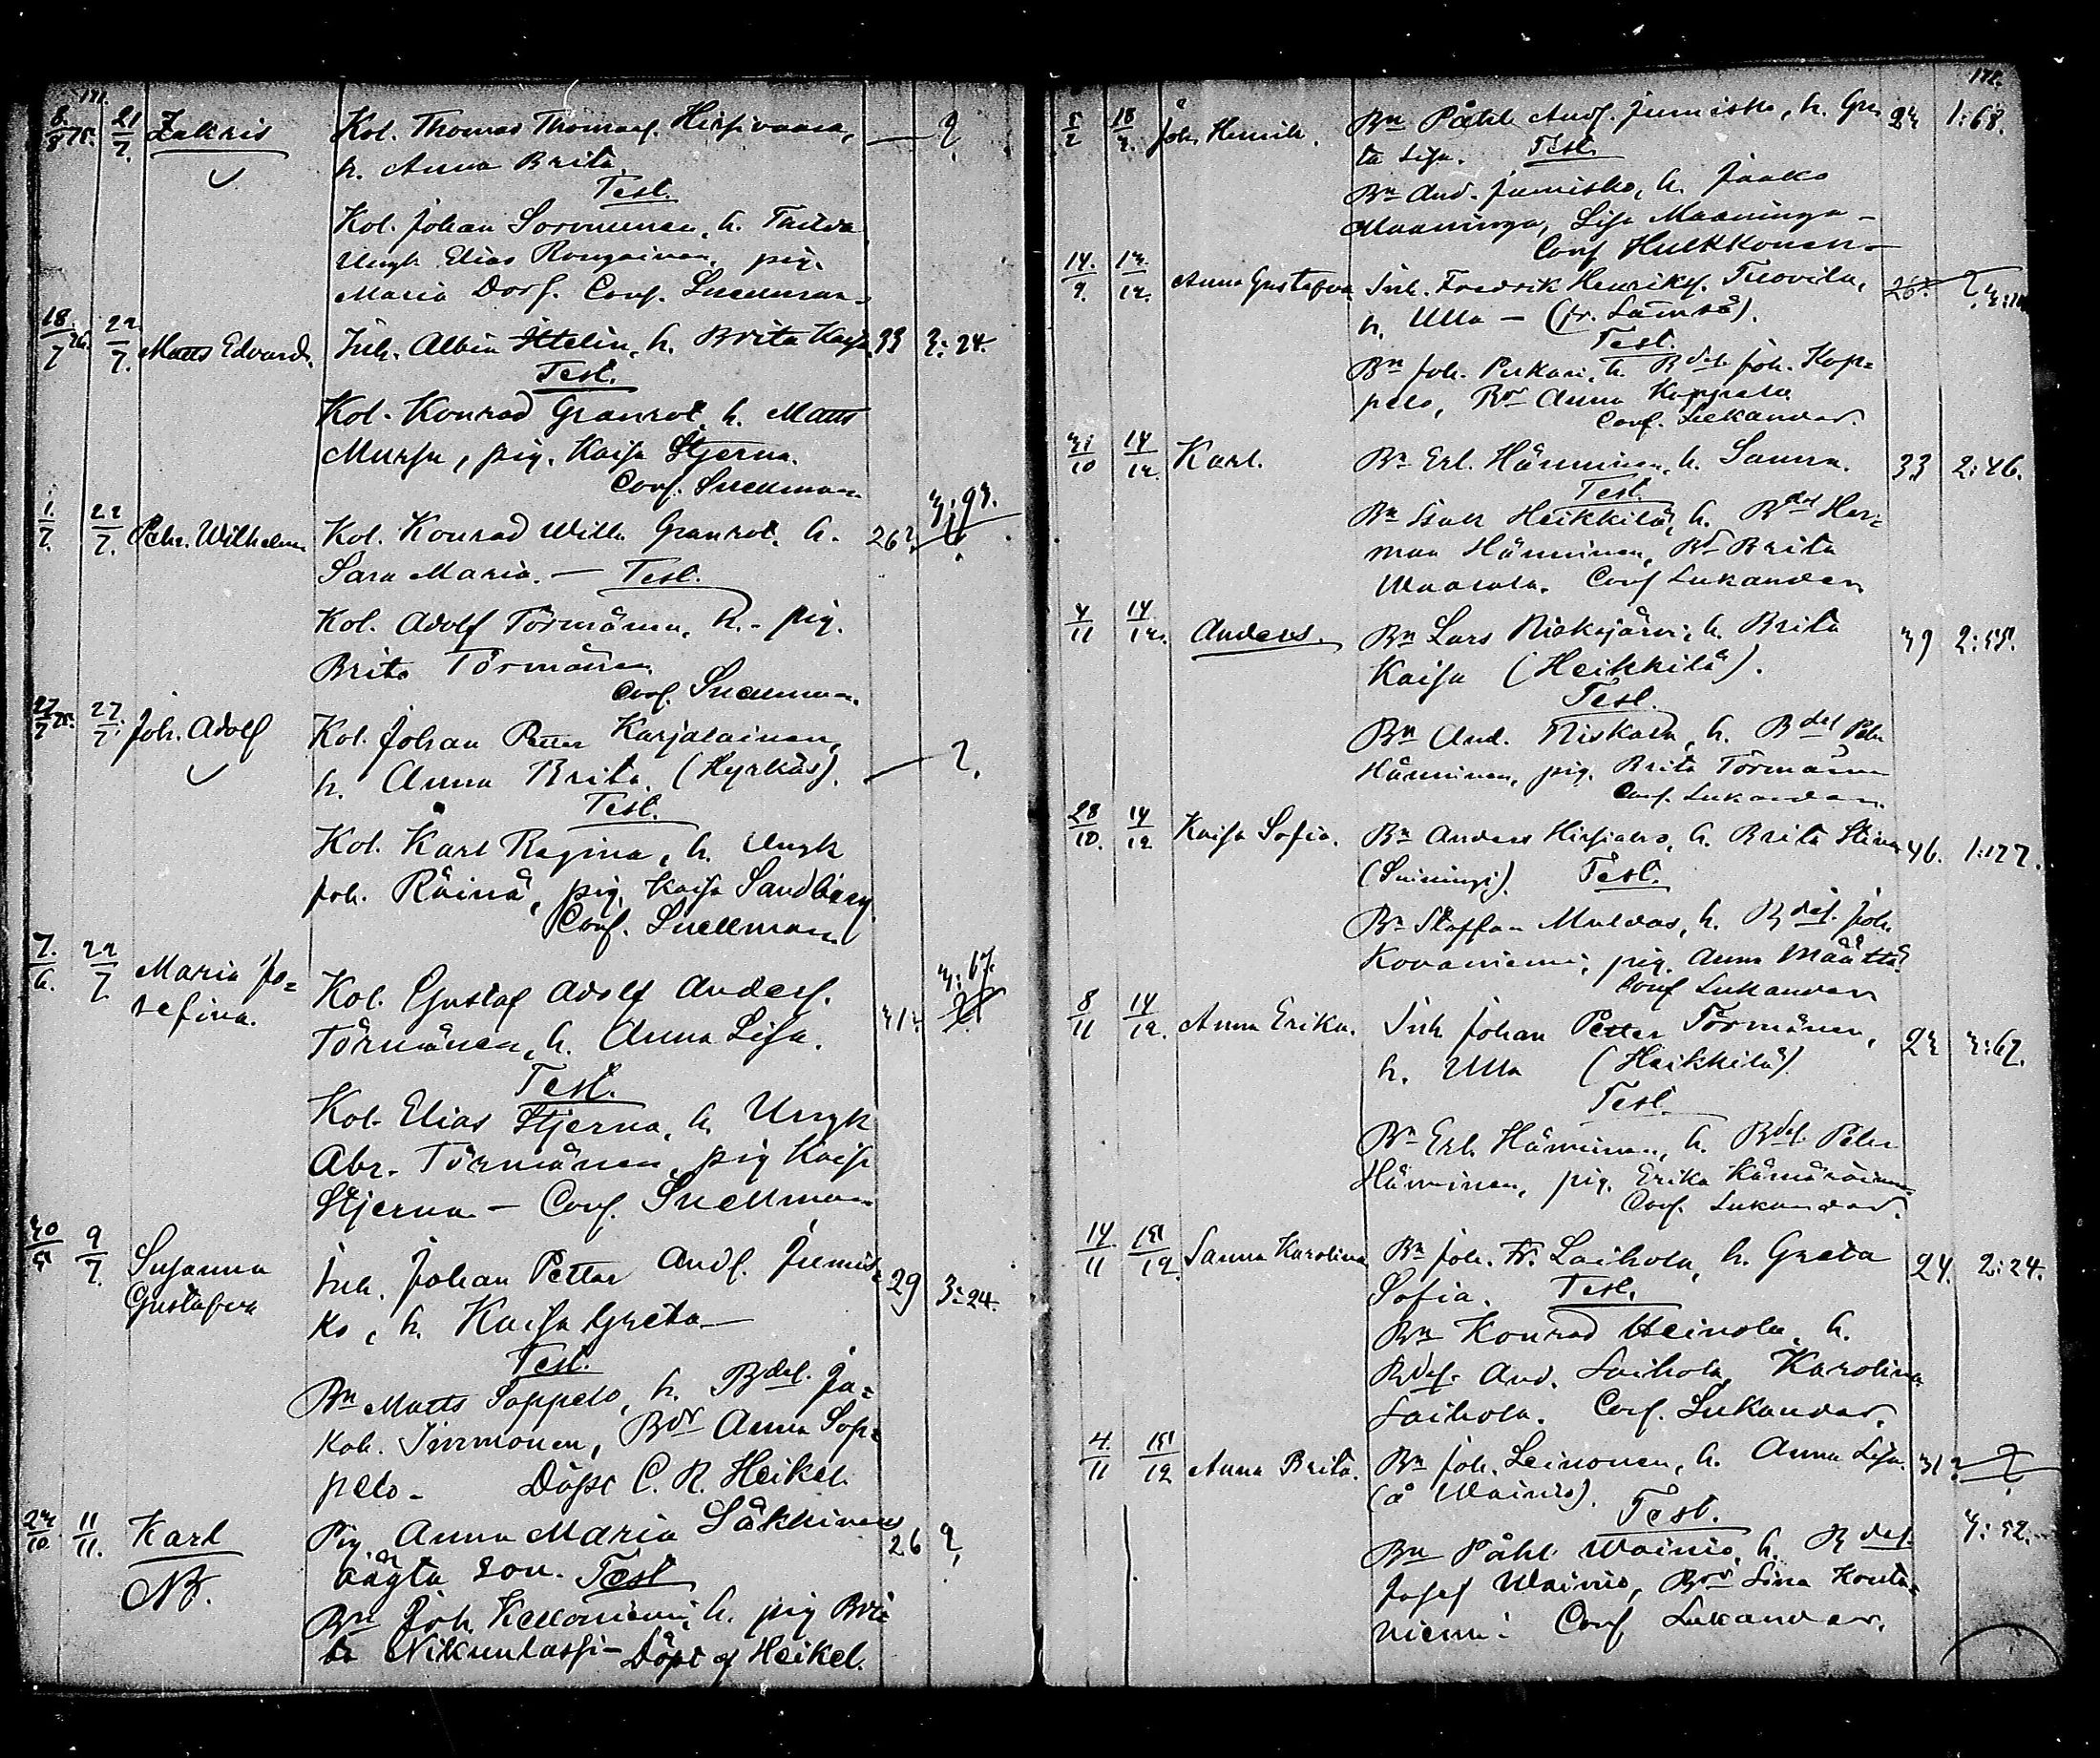 171.
8/8 75. 21/7. Zakris Kol. Thomas Thomasf. Hirsivaara, — ?
h. Anna Brita
Test.
Kol. Johan Sormunen, h.
Ungk Elias Rongainen, pig.
Maria Dorf. Conf. Snellman.
18/7 76. 22/7. Matts Edvard. Inh. Albin Ittelin, h. Brita Kaisa 33 3:24.
Test.
Kol. Konrad Granrot, h. Matts
Mursu, pig. Kaisa Stjerna.
Conf. Snellman
1./7. 22/7. Pehr. Wilhelm Kol. Konrad Wilh. Granrot, h. 26? 3:93.
Sara Maria. — Test.
Kol. Adolf Törmänen, h. - pig.
Brita Törmänen
Conf. Snellman.
27/7 75. 27/7. Joh. Adolf Kol. Johan Petter Karjalainen, — ?
h. Anna Brita. (Hyrkäs).
Test.
Kol. Karl Regina, h. Ungk
Joh. Räinä, pig. Kaisa Sandberg.
Conf. Snellman.
7./6. 22/7. Maria Jo= Kol. Gustaf Adolf Andersf. 3:67.
sefina. Törmänen, h. Anna Lisa. 31?
Test.
Kol. Elias Stjerna, h. Ungk
Abr. Törmänen, pig Kaisa
Stjerna — Conf. Snellman
30/5 9/7. Susanna Inh. Johan Petter Andf. Jumis= 29 3:24.
Gustafva ko, h. Kaisa Greta —
Test.
Bn Matts Soppela, h. Bdef. Ja=
kob. Immonen, Bdr Anna Sop=
pela. Döpt C. R. Heikel.
23/10 11/11. Karl Pig. Anna Maria Säkkinens 26 ?
NB. oägta son. Test
Bn Joh. Kelloniemi, h. pig Bri=
ta Nikunlassi — Döpt af Heikel.
172.
5/2 18/3. Joh. Henrik. Bn Påhl Andf. Jumisko, h. Gre 23 1:68.
ta Lisa. Test.
Bn And. Jumisko, h. Jaako
Maaninga, Lisa Maaninga —
Conf Hulkkonen —
14./9. 13/12. Anna Gustafva Inh. Fredrik Henriksf. Tuovila, 26?
h. Ulla — (fr. Lämsä).
Test.
Bn Joh. Pirkari, h. Bdef. Joh. Kop=
pelo, Bdr Anna Koppelo
Conf. Lukander.
31/10 14/12. Karl. Bn Erl. Hänninen, h. Sanna. 33 2:46.
Test.
Bn Isak Heikkilä, h. Bdef Her=
man Hänninen, Bdr Brita
Waarala. Conf Lukander
4/11 14/12. Anders. Bn Lars Niskajärvi, h. Brita 39 2:55.
Kaisa (Heikkilä).
Test.
Bn And. Niskala, h. Bdef Pehr
Hänninen, pig. Brita Törmänen
Conf. Lukander
28/10. 14/12 Kaisa Sofia. Bn Anders Hirsiaho, h. Brita Stina 46. 1:127.
(Suiningi). Test.
Bn Staffan Mulvas, h. Bdef. Joh.
Kovaniemi, pig. Anna Määttä
Conf Lukander
8/11 14/12. Anna Erika. Inh Johan Petter Törmänen, 23 3:67.
h. Ulla (Heikkilä)
Test.
Bn Erl. Hänninen, h. Bdef. Pehr
Hänninen, pig. Erika Kämäräinen
Conf. Lukander.
14/11 15/12. Sanna Karolina Bn Joh. Fr. Laihola, h. Greta 24. 2:24.
Sofia. Test.
Bn Konrad Heinola, h.
Bdef. And. Laihola, Karolina
Laihola. Conf. Lukander.
4./11 15/12 Anna Brita. Bn Joh. Leinonen, h. Anna Lisa. 31?
(å Wainio). Test. 3:52.
Bn Påhl Wainio, h. Bdef.
Josef Wainio, Bdr Lina Konta=
niemi. Conf Lukander.